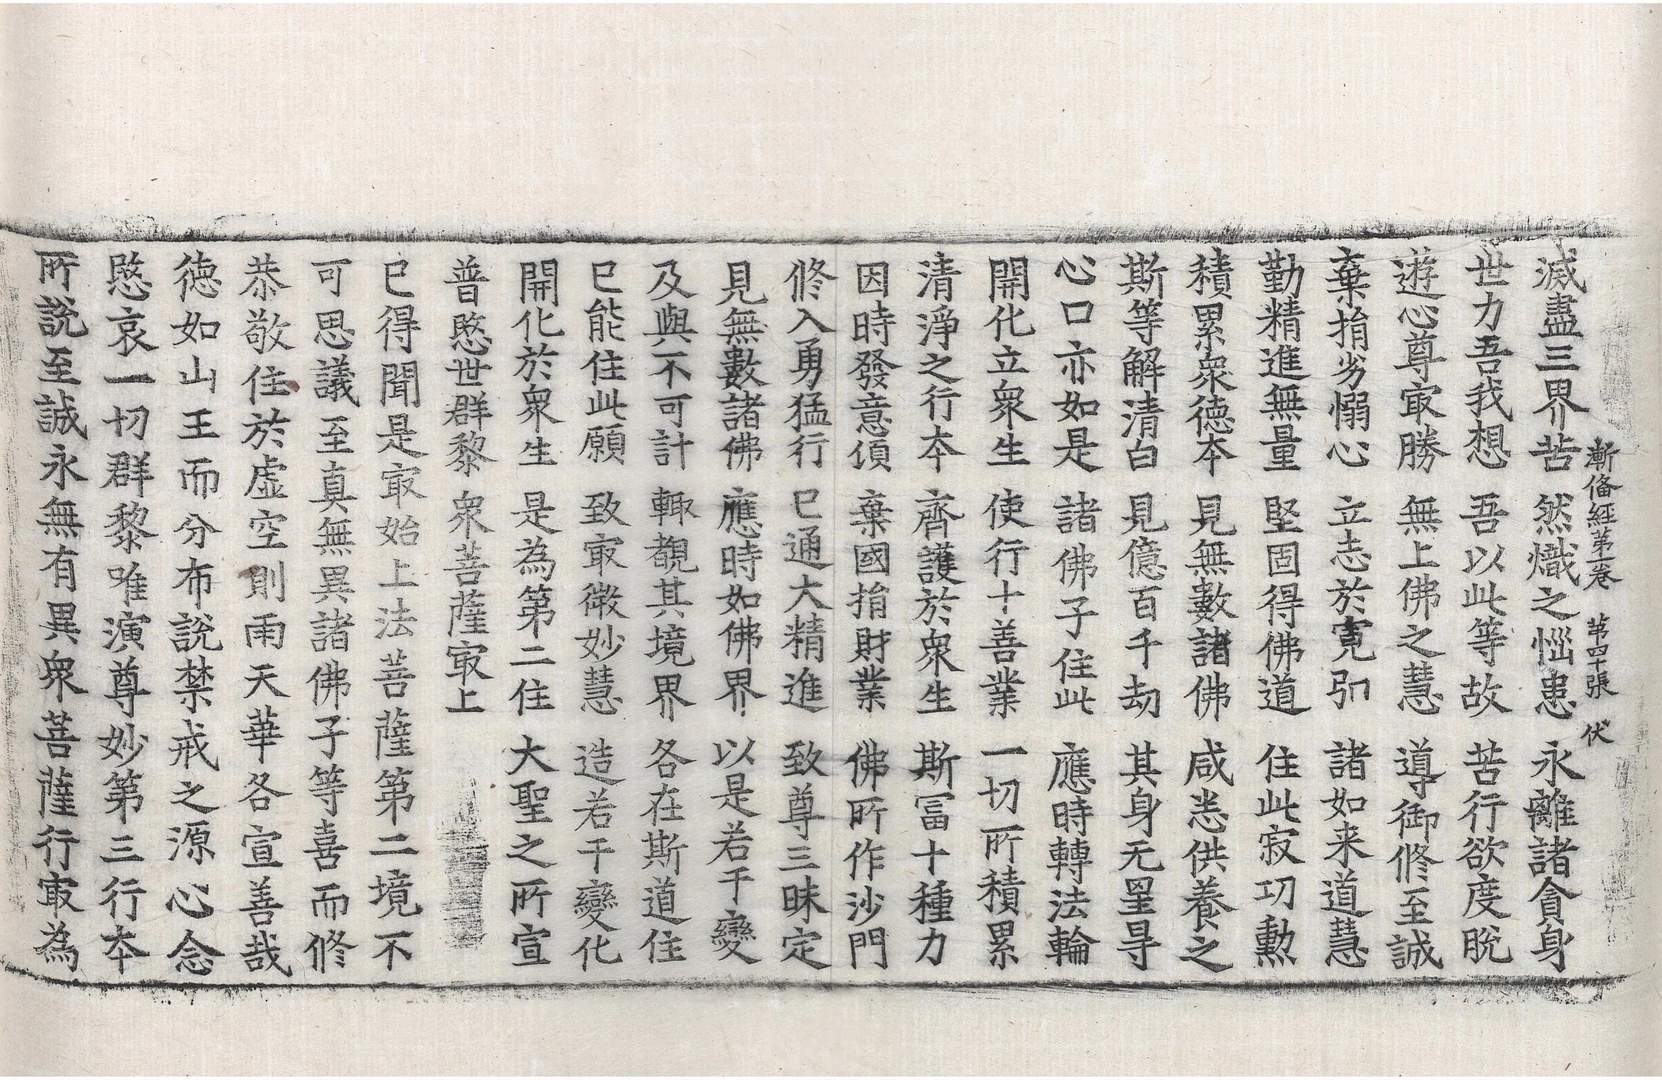 漸俻經第一卷　第四十張　伏
滅盡三界苦　然熾之惱患　永離諸貪身
世力吾我想　吾以此等故　苦行欲度脫
遊心尊㝡勝　無上佛之慧　導御修至誠
棄捐劣懈心　立志於寛弘　諸如来道慧
勤精進無量　堅固得佛道　住此寂功勲
積累衆徳本　見無數諸佛　咸悉供養之
斯等解清白　見億百千劫　其身无罣㝵
心口亦如是　諸佛子住此　應時轉法輪
開化立衆生　使行十善業　一切所積累
清淨之行本　齊護於衆生　斯冨十種力
因時發意頃　棄國捐財業　佛所作沙門
修入勇猛行　已通大精進　致尊三昧定
見無數諸佛　應時如佛界　以是若干變
及與不可計　輙覩其境界　各在斯道住
已能住此願　致㝡微妙慧　造若干變化
開化於衆生　是為第二住　大聖之所宣
普愍世群黎　衆菩薩㝡上
已得聞是㝡始上法菩薩第二境不
可思議至真無異諸佛子等喜而修
恭敬住於虛空則雨天華各宣善哉
徳如山王而分布說禁戒之源心念
愍哀一切群黎唯演尊妙第三行本
所說至誠永無有異衆菩薩行㝡為